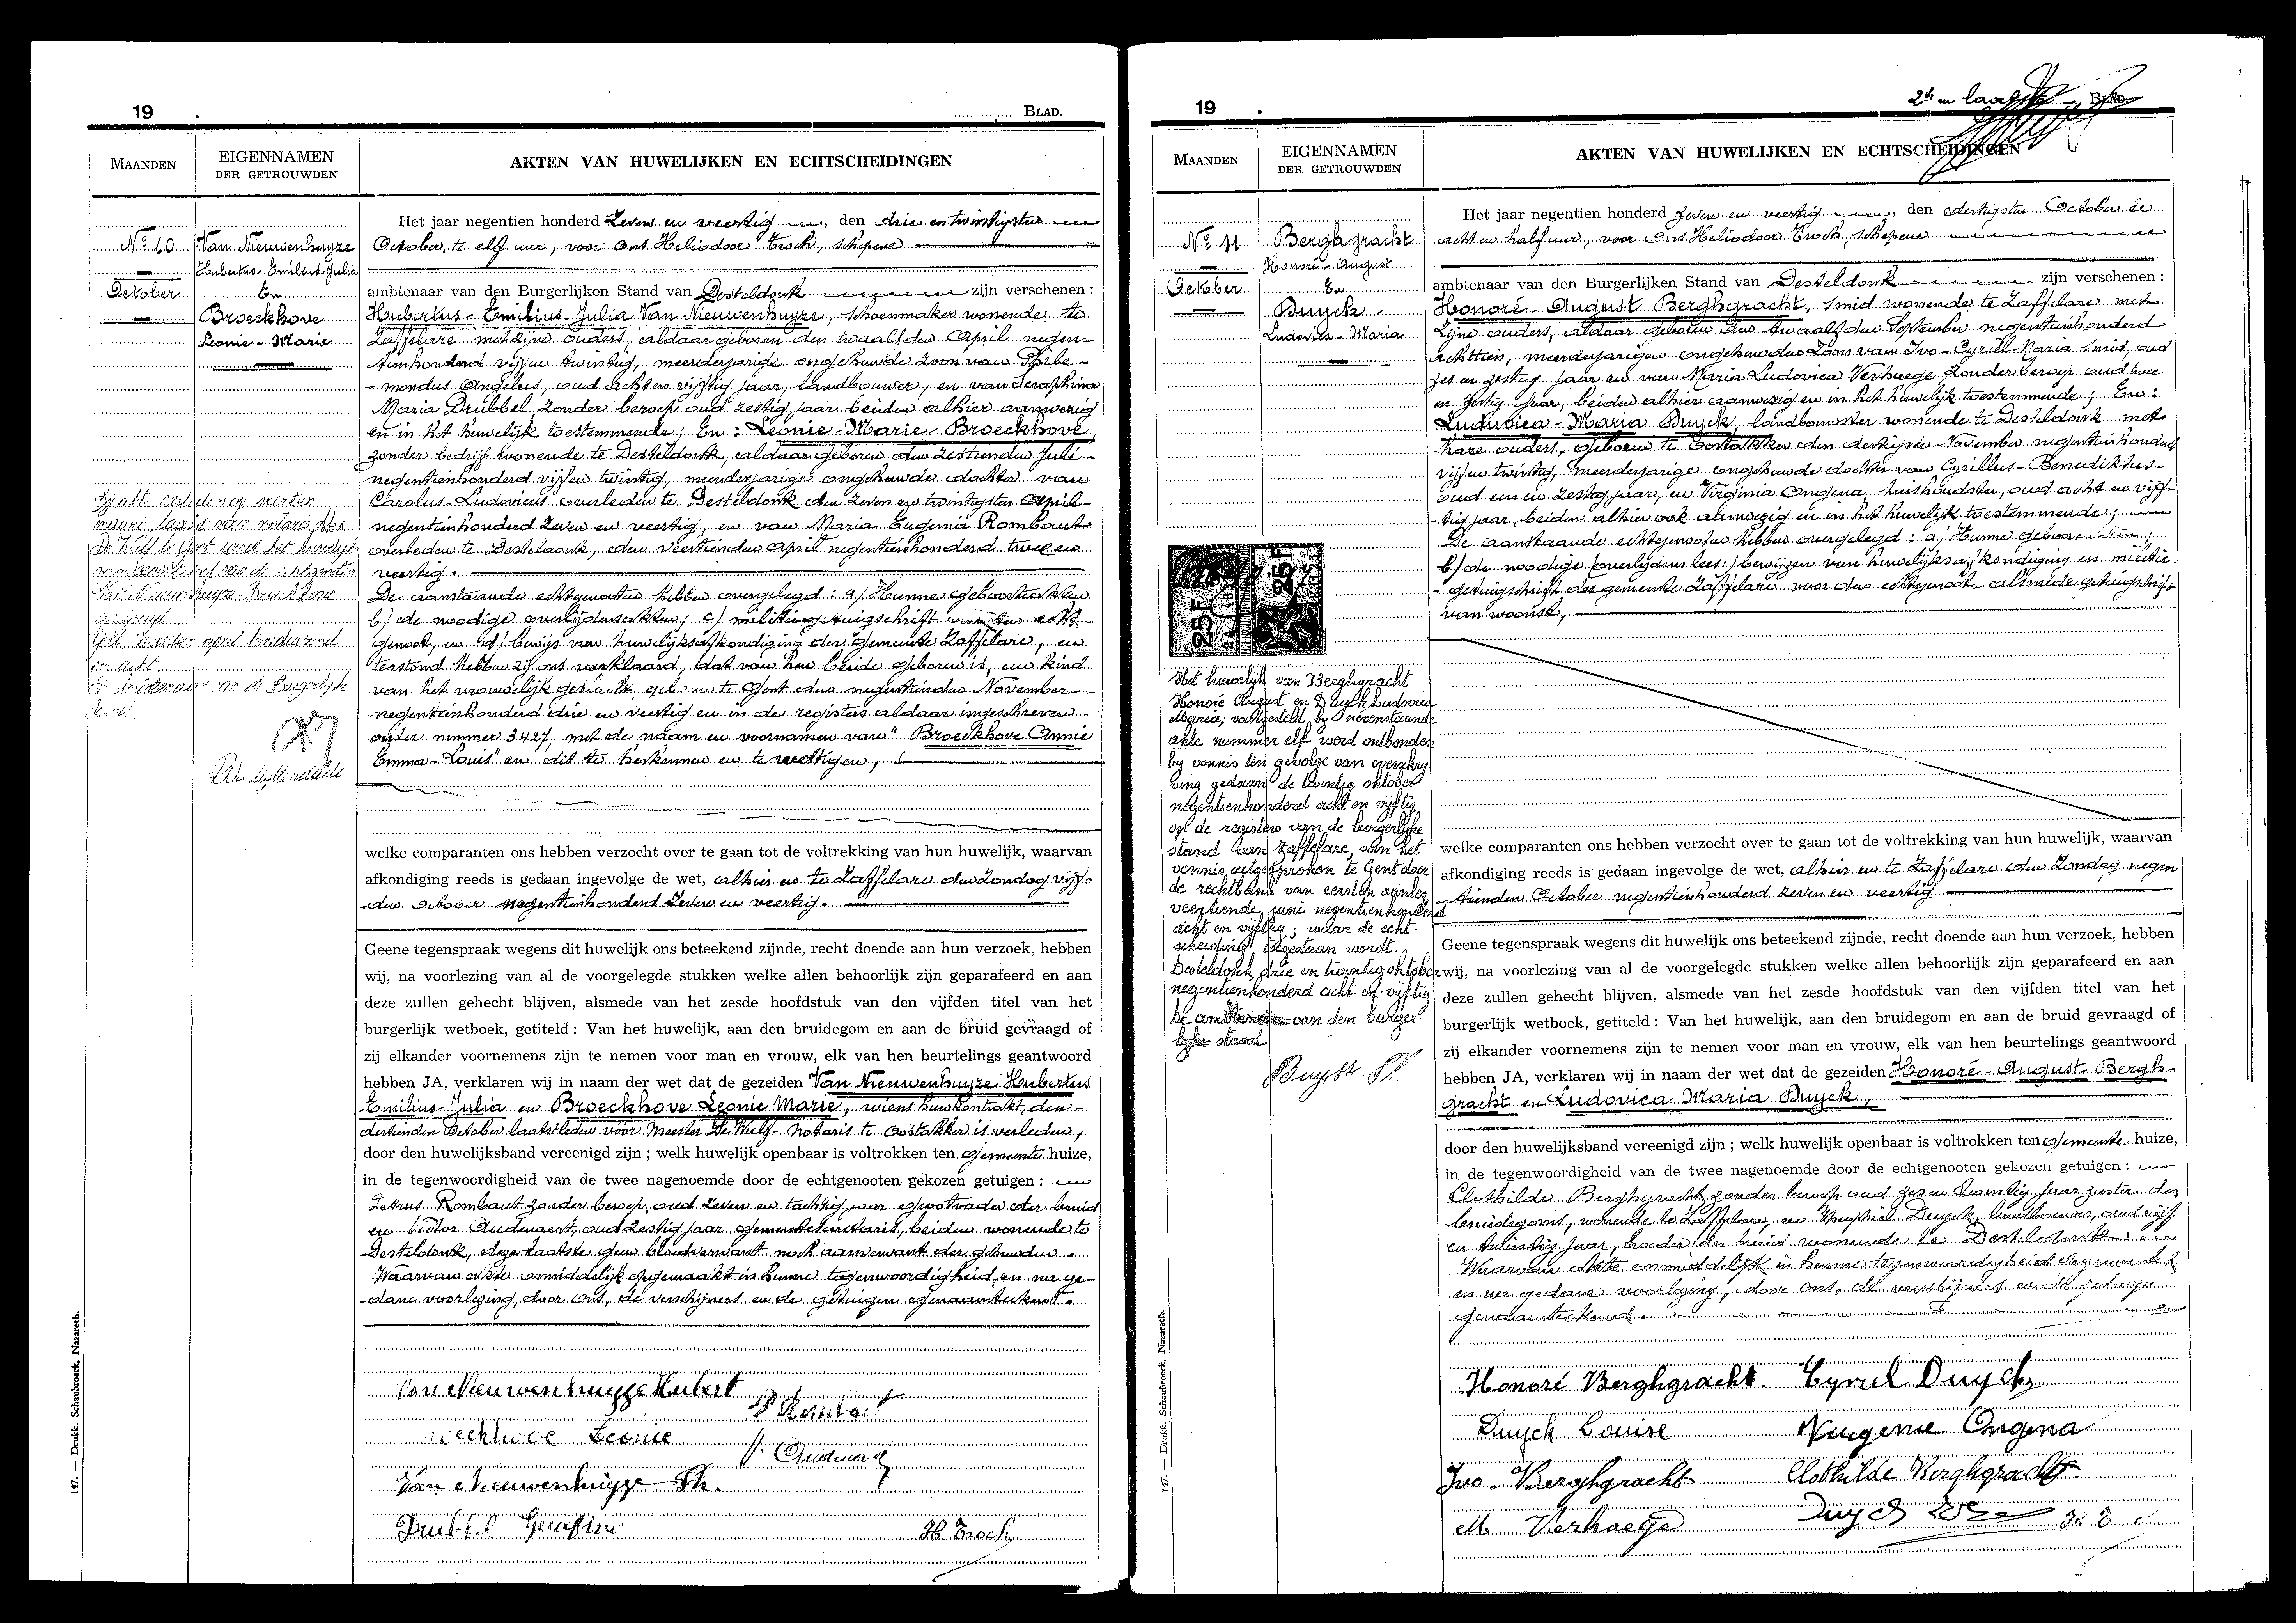 19
BLAD.
MAANDEN
EIGENNAMEN
DER GETROUWDEN
AKTEN VAN HUWELIJKEN EN ECHTSCHEIDINGEN
Het jaar negentien honderd Zeven en veertig, den drie en twintigsten
October, te elf uur, voor Ons Heliodoor Troch, schepene
ambtenaar van den Burgerlijken Stand van Desteldonk zijn verschenen :
Nr 10
October
Van Nieuwenhuyze
Hubertus-Emilius-Julia
En
Broeckhove
Leonie-Marie
Hubertus-Emilius-Julia Van Nieuwenhuyze, schoenmaker wonende te
Zaffelare met zijne ouders, aldaar geboren den twaalfden April negen-
tienhonderd vijf en twintig, meerderjarige ongehuwde zoon van
-mondus Angelus, oud acht en vijftig jaar, landbouwer, en van Seraphina
Maria Drubbel, zonder beroep oud zestig jaar beiden alhier aanwezig
en in het huwelijk toestemmende; En : Leonie-Marie-Broeckhove,
zonder bedrijf wonende te Desteldonk, aldaar geboren den zestienden Juli-
negentienhonderd vijf en twintig, meerderjarige ongehuwde dochter van
Carolus-Ludovicus overleden te Desteldonk den zeven en twintigsten April-
negentienhonderd zeven en veertig, en van Maria Eugenia Rombaut
overleden te Desteldonk, den veertienden April negentienhonderd twee en
veertig.
De aanstaande echtgenooten hebben overgelegd : a) Hunne geboorteakten
b) de noodige overlijdensakten; c) militiegetuigschrift van den echt-
genoot, en d) bewijs van huwelijksafkondiging der gemeente Zaffelare, en
terstond hebben zij ons verklaard, dat van hen beide geboren is, een kind
van het vrouwelijk geslacht, geb. te Gent den negentienden November
negentienhonderd drie en veertig en in de registers aldaar ingeschreven
onder nummer 3427, met de naam en voornamen van "Broeckhove Annie
Emma-Louis" en dit te herkennen en te wettigen,
welke comparanten ons hebben verzocht over te gaan tot de voltrekking van hun huwelijk, waarvan
afkondiging reeds is gedaan ingevolge de wet, alhier en te Zaffelare den Zondag vijf-
-den October negentienhonderd zeven en veertig.
Geene tegenspraak wegens dit huwelijk ons beteekend zijnde, recht doende aan hun verzoek, hebben
wij, na voorlezing van al de voorgelegde stukken welke allen behoorlijk zijn geparafeerd en aan
deze zullen gehecht blijven, alsmede van het zesde hoofdstuk van den vijfden titel van het
burgerlijk wetboek, getiteld : Van het huwelijk, aan den bruidegom en aan de bruid gevraagd of
zij elkander voornemens zijn te nemen voor man en vrouw, elk van hen beurtelings geantwoord
hebben JA, verklaren wij in naam der wet dat de gezeiden Van Nieuwenhuyze Hubertus
Emilius-Julia en Broeckhove Leonie Marie, wiens huwkontrakt, den-
dertienden October laatstleden voor Meester De Wulf-notaris te Oostakker is verleden,
door den huwelijksband vereenigd zijn ; welk huwelijk openbaar is voltrokken ten gemeente huize,
in de tegenwoordigheid van de twee nagenoemde door de echtgenooten gekozen getuigen :
Petrus Rombaut zonder beroep, oud zeven en tachtig jaar grootvader der bruid
en Victor Audenaert, oud zestig jaar gemeentesecretaris, beiden wonende te
Desteldonk, deze laatste geen bloedverwant noch aanverwant der gehuwden.
Waarvan akte onmiddelijk opgemaakt in hunne tegenwoordigheid, en na ge-
-dane voorlezing, door Ons, de verschijners en de getuigen genaamteekend.
Van Nieuwenhuyze Hubert
Leonie
Van Nieuwenhuyze Th.
H Troch
147. — Drukk. Schaubroeck, Nazareth.
19
2de en laatste BLAD.
MAANDEN
EIGENNAMEN
DER GETROUWDEN
AKTEN VAN HUWELIJKEN EN ECHTSCHEIDINGEN
Nr 11
October
Berghgracht
Honoré-August
En
Duyck
Ludovica-Maria
Het jaar negentien honderd zeven en veertig, den dertigsten October te
acht en half uur, voor Ons Heliodoor Troch, schepene
ambtenaar van den Burgerlijken Stand van Desteldonk zijn verschenen :
Honoré-August Berghgracht, smid wonende te Zaffelare met
zijne ouders, aldaar geboren den twaalfden September negentienhonderd
achttien, meerderjarigen ongehuwden zoon van Ivo-Cyriel-Maria smid, oud
zes en zestig jaar en van Maria Ludovica Verhaege zonder beroep oud twee
en zestig jaar, beiden alhier aanwezig en in het huwelijk toestemmende; En :
Ludovica-Maria Duyck, landbouwster wonende te Desteldonk met
hare ouders, geboren te Oostakker den dertigsten November negentienhonderd
vijf en twintig, meerderjarige ongehuwde dochter van Cyrillus-Benediktus-
oud een en zestig jaar, en Virginia Ongena, huishoudster, oud acht en vijf-
-tig jaar, beiden alhier ook aanwezig en in het huwelijk toestemmende;
De aanstaande echtgenooten hebben overgelegd : a) Hunne geboorteakten;
b) de noodige (overlijdens lees:) bewijzen van huwelijksafkondiging en militie-
-getuigschrift der gemeente Zaffelare voor den echtgenoot alsmede getuigschrift
van woonst,
25F 25F
Het huwelijk van Berghgracht
Honoré August en Duyck Ludovica
Maria, vastgesteld bij nevenstaande
akte nummer elf werd ontbonden
bij vonnis ten gevolge van overschrij
ving gedaan de twintig oktober
negentienhonderd acht en vijftig
op de registers van de burgerlijke
stand van Zaffelare, van het
vonnis uitgesproken te Gent door
de rechtbank van eersten aanleg
veertiende juni negentienhonderd
acht en vijftig; waar de echt-
scheiding toegestaan wordt.
Desteldonk, drie en twintig oktober
negentienhonderd acht en vijftig
De ambtenaar van den burger
lijke stand.
welke comparanten ons hebben verzocht over te gaan tot de voltrekking van hun huwelijk, waarvan
afkondiging reeds is gedaan ingevolge de wet, alhier en te Zaffelare den Zondag negen
-tienden October negentienhonderd zeven en veertig
Geene tegenspraak wegens dit huwelijk ons beteekend zijnde, recht doende aan hun verzoek, hebben
wij, na voorlezing van al de voorgelegde stukken welke allen behoorlijk zijn geparafeerd en aan
deze zullen gehecht blijven, alsmede van het zesde hoofdstuk van den vijfden titel van het
burgerlijk wetboek, getiteld : Van het huwelijk, aan den bruidegom en aan de bruid gevraagd of
zij elkander voornemens zijn te nemen voor man en vrouw, elk van hen beurtelings geantwoord
hebben JA, verklaren wij in naam der wet dat de gezeiden Honoré-August-Bergh-
gracht en Ludovica Maria Duyck,
door den huwelijksband vereenigd zijn ; welk huwelijk openbaar is voltrokken ten gemeente huize,
in de tegenwoordigheid van de twee nagenoemde door de echtgenooten gekozen getuigen :
Clothilde Berghgracht zonder beroep oud zes en twintig jaar zuster des
bruidegoms, wonende te Zaffelare, en Duyck, landbouwer, oud vijf
en twintig jaar, broeder der bruid wonende te Desteldonk
Waarvan akte onmiddelijk in hunne tegenwoordigheid opgemaakt
en na gedane voorlezing, door Ons, de verschijners en de getuigen
genaamteekend.
Honoré Berghgracht Cyriel Duyck
Duyck Louise Ongena
Ivo Berghgracht Clothilde Berghgracht
M Verhaege Duyck
147. — Drukk. Schaubroeck, Nazareth.